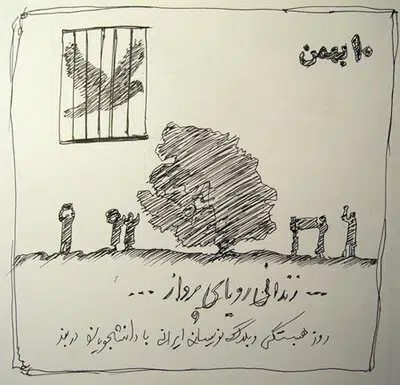 ۱۰ بهمن
... زندانی رویای پرواز ...
و
روز همبستگی وبلاگ نویسان ایرانی با دانشجویان دربند